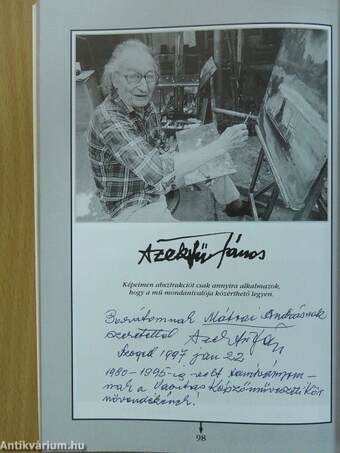 Szekfü János
Képeimen absztrakciót csak annyira alkalmazok,
hogy a mű mondanivalója közérthető legyen.
Barátomnak Mátrai Andrásnak
szeretettel
Szeged 1997 jan 22
1980-1995-ig volt
nak a Vasutas Képzőművészeti Kör
növendékének!
98
Antikvárium.hu